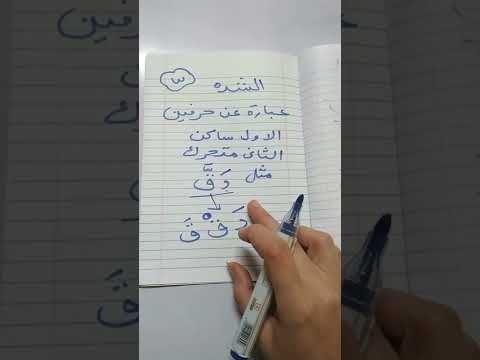 الشده
عبارة عن حرفين
الاول ساكن
الثانى متحرك
مثل دَقَّ
دَ قْ قَ